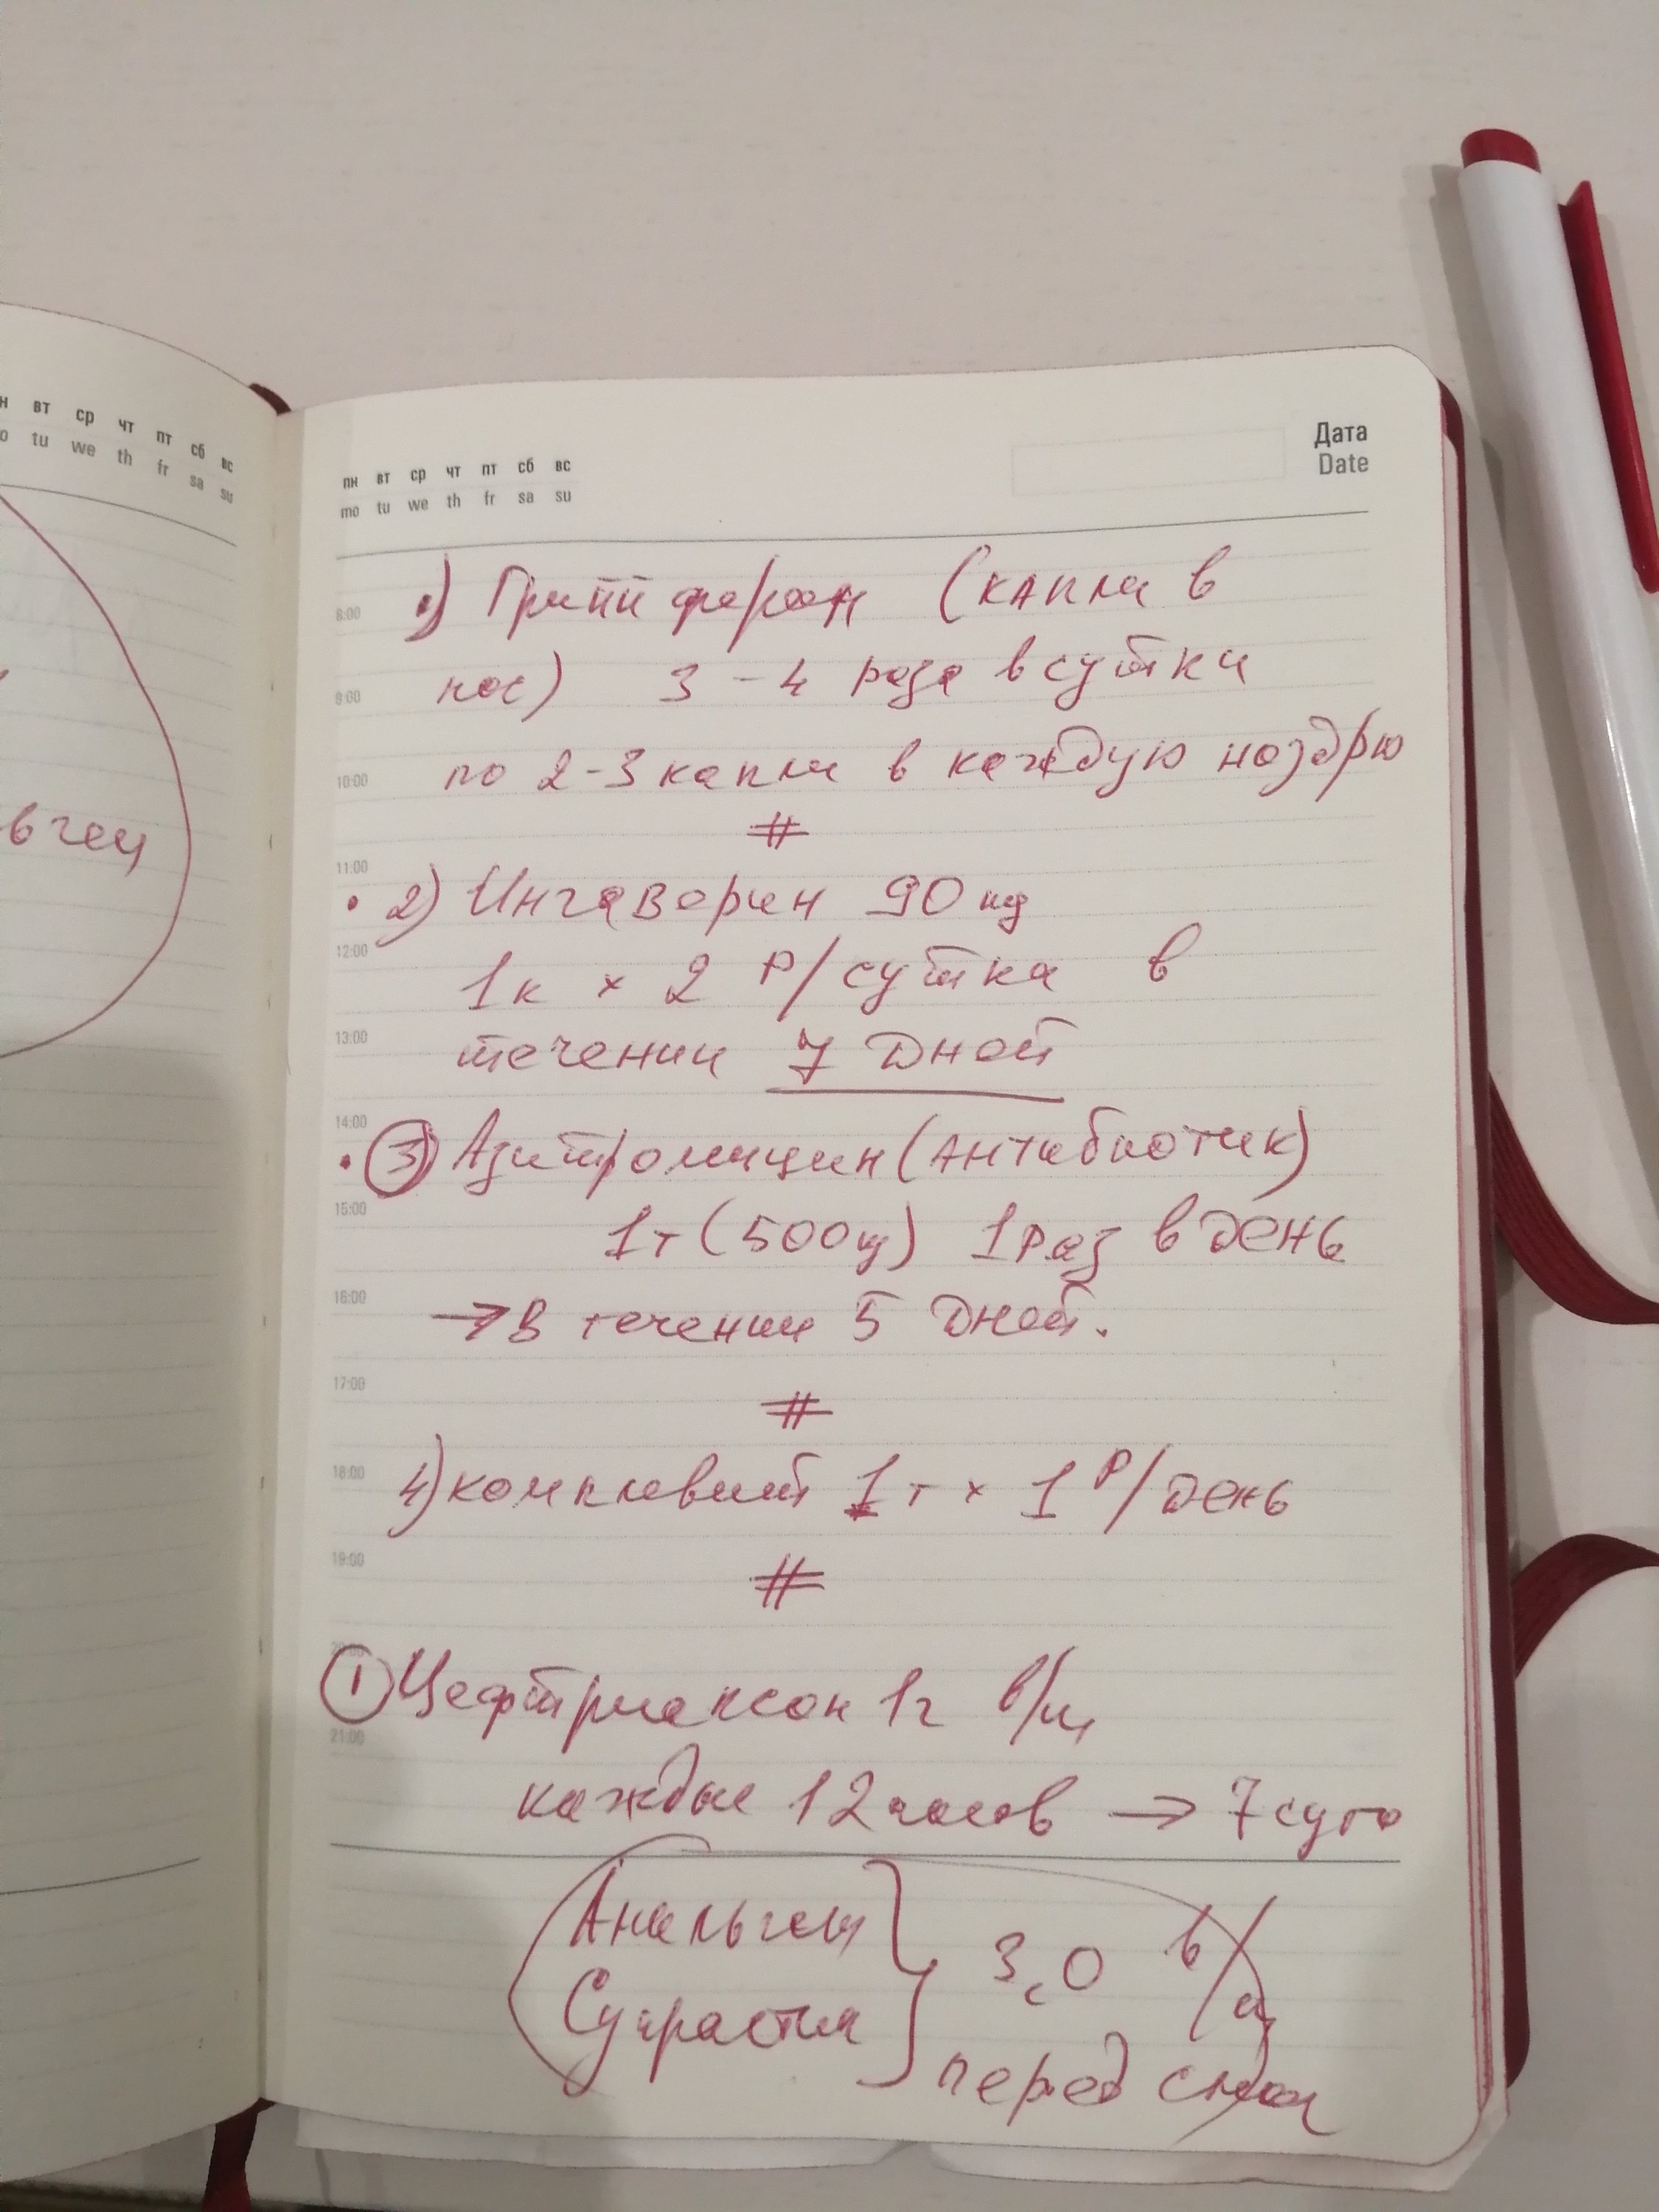 н вт ср чт пт сб вс
o tu we th fr sa su
пн вт ср чт пт сб вс
mo tu we th fr sa su
Дата
Date
1) Гриппферон (капли в
8:00
нос) 3-4 раза в сутки
9:00
по 2-3 капли в каждую ноздрю
10:00
#
11:00
• 2) Ингаверин 90 мг
12:00
1к × 2 р/сутка в
13:00
течении 7 дней
14:00
• 3) Азитромицин (антибиотик)
15:00
1т (500мг) 1 раз в день
16:00
→ в течении 5 дней.
17:00
#
4) компливит 1т × 1 р/день
18:00
19:00
#
20:00
1 Цефтриаксон 1г в/м
21:00
каждые 12 часов → 7 суто
Анальгин
Супрастин } 3,0 в/м
перед сном